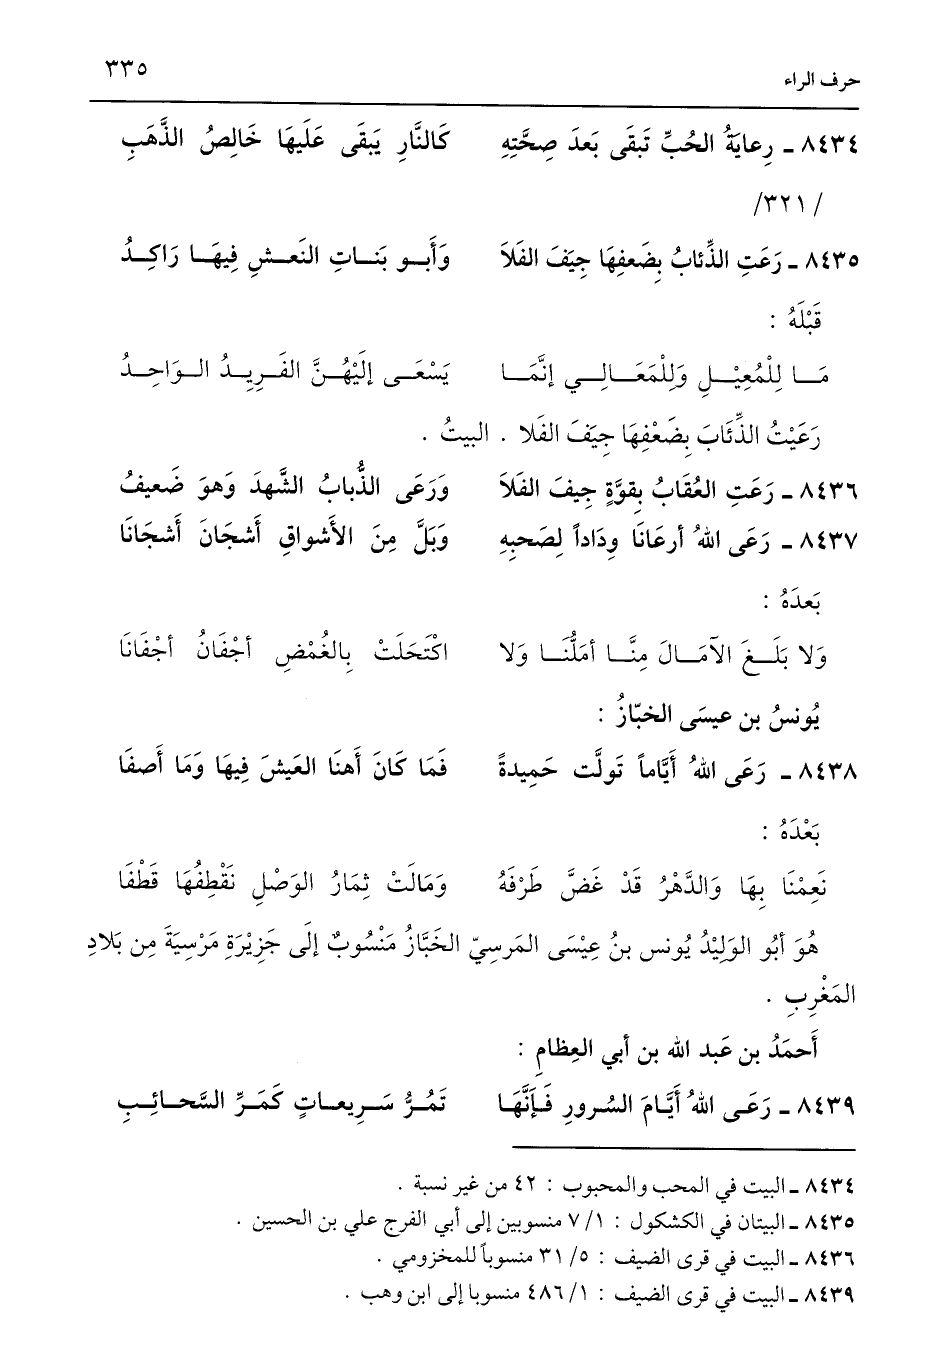 حرف الراء ٣٣٥
٨٤٣٤ ـ رِعايَةُ الحُبِّ تَبقَى بَعدَ صِحَّتِهِ كَالنَّارِ يَبقَى عَلَيهَا خَالِصُ الذَّهَبِ
/٣٢١/
٨٤٣٥ ـ رَعَتِ الذِّئابُ بِضَعفِهَا جِيَفَ الفَلاَ وَأَبـو بَنـاتِ النَعـشِ فِيهَـا رَاكِـدُ
قَبْلَهُ :
مَـا لِلْمُعِيْـلِ وَلِلْمَعَـالِـي إنَّمَـا يَسْعَـى إلَيْهُـنَّ الفَـرِيـدُ الـوَاحِـدُ
رَعَيْتُ الذِّئَابَ بِضَعْفِهَا جِيَفَ الفَلا . البَيتُ .
٨٤٣٦ ـ رَعَتِ العُقَابُ بِقوَّةٍ جِيفَ الفَلاَ وَرَعَى الذُّبابُ الشَّهدَ وَهوَ ضَعيفُ
٨٤٣٧ ـ رَعَى اللهُ أرعَانَا وِدَاداً لِصَحبِهِ وَبَلَّ مِنَ الأَشواقِ أَشجَانَ أَشجَانَا
بَعدَهُ :
وَلا بَلَـغَ الآمَـالَ مِنَّـا أمَلُّنَـا وَلا اكْتَحَلَتْ بِالغُمْضِ أجْفَانُ أجْفَانَا
يُونسُ بن عيسَى الخبّازُ :
٨٤٣٨ ـ رَعَى اللهُ أَيَّاماً تَولَّت حَمِيدةً فَمَا كَانَ أَهنَا العَيشَ فِيهَا وَمَا أَصفَا
بَعْدَهُ :
نَعِمْنَا بِهَا وَالدَّهْرُ قَدْ غَضَّ طَرْفَهُ وَمَالَتْ ثِمَارُ الوَصْلِ نَقْطِفُهَا قَطْفَا
هُوَ أبُو الوَلِيْدُ يُونس بنُ عِيْسَى المَرسِيّ الخَبَّازُ مَنْسُوبٌ إلَى جَزِيْرَةِ مَرْسِيَةَ مِن بَلادِ
المَغْرِبِ .
أَحمَدُ بن عَبد الله بن أبي العِظامِ :
٨٤٣٩ ـ رَعَـى اللهُ أَيَّـامَ السُـرورِ فَـإِنَّهَـا تَمُـرُّ سَـرِيعـاتٍ كَمَـرِّ السَّحـائِـبِ
٨٤٣٤ ـ البيت في المحب والمحبوب : ٤٢ من غير نسبة .
٨٤٣٥ ـ البيتان في الكشكول : ١/ ٧ منسوبين إلى أبي الفرج علي بن الحسين .
٨٤٣٦ ـ البيت في قرى الضيف : ٥/ ٣١ منسوباً للمخزومي .
٨٤٣٩ ـ البيت في قرى الضيف : ١/ ٤٨٦ منسوبا إلى ابن وهب .